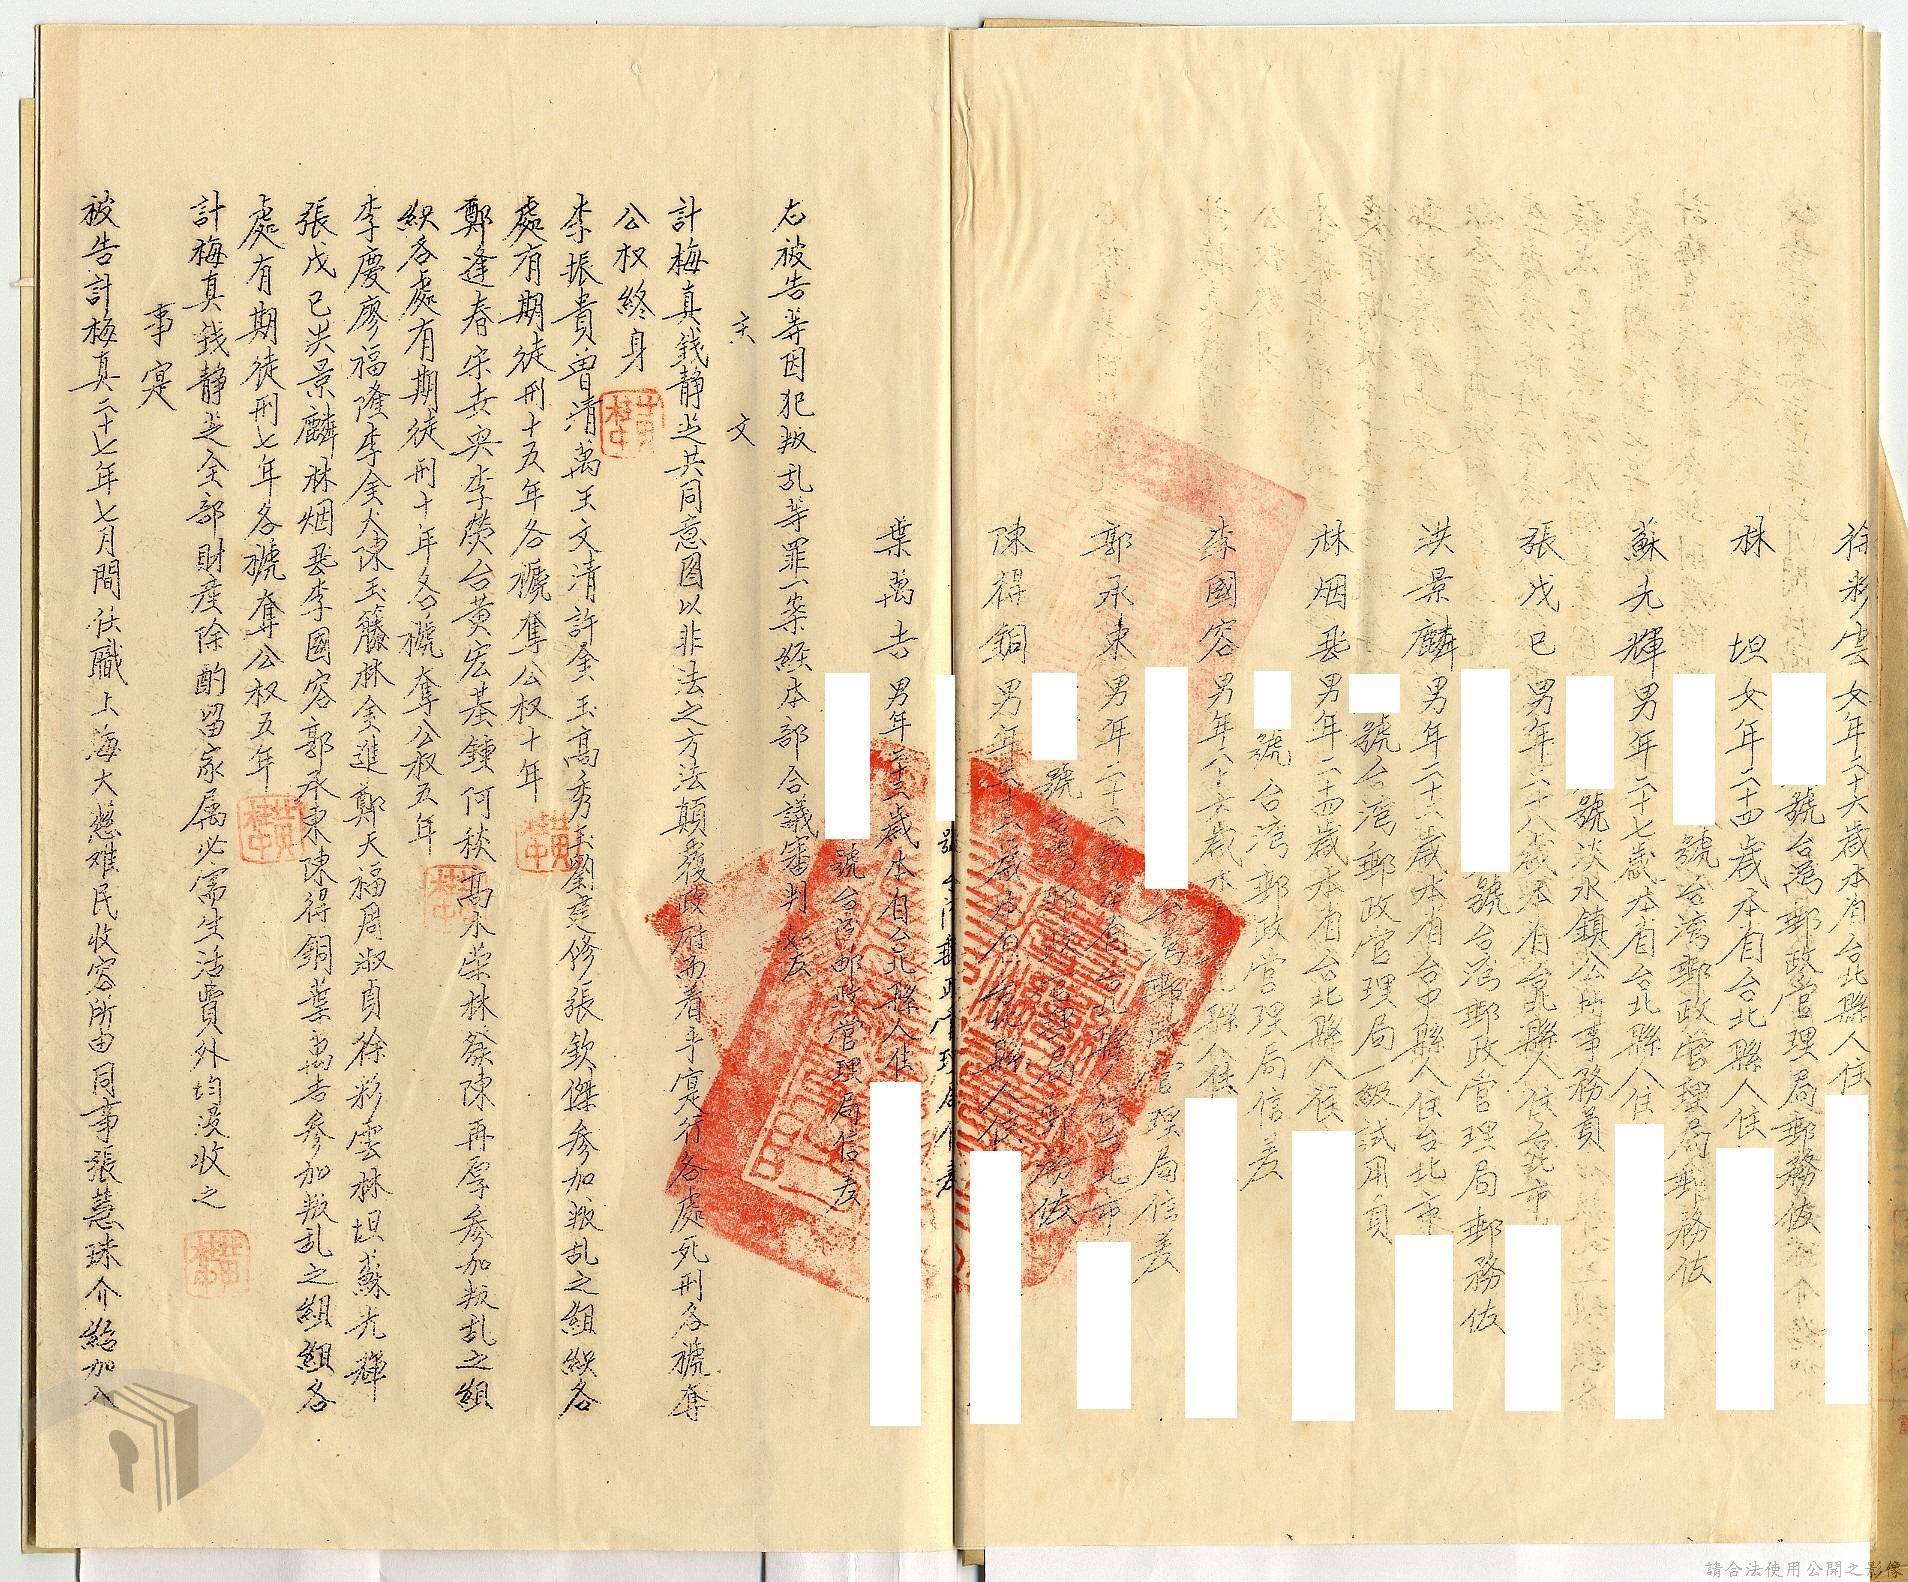 徐彩雲 女年二十六歲本省台北縣人住
號台灣郵政管理局郵務佐
林坦 女年二十四歲本省台北縣人住
號台灣郵政管理局郵務佐
蘇光輝 男年二十七歲本省台北縣人住
號淡水鎮公所事務員
張戊己 男年二十八歲本省台北縣人住台北市
號台灣郵政管理局郵務佐
洪景麟 男年二十二歲本省台中縣人住台北市
號台灣郵政管理局一級試用員
林烟基 男年二十四歲本省台北縣人住
號台灣郵政管理局信差
李國容 男年 縣人住
台灣郵政管理局信差
郭承東 男年二十 本省台北縣人住台北市
號台灣郵政管理局郵務佐
陳得銅 男年二十六歲本省台北縣人住
號台灣郵政管理局信差
葉萬吉 男年二十三歲本省台北縣人住
號台灣郵政管理局信差
右被告等因犯叛乱等罪一案経本部合議審判 如左
主文
計梅真錢靜芝共同意图以非法之方法顛覆政府而着手寔行各處死刑各褫奪
公权終身
李振貴曽清萬王文清許金玉高秀玉劉建修張欽傑參加叛乱之組织各
處有期徒刑十五年各褫奪公权十年
鄭逢春宋世興李熒台黃宏基鍾阿秋高木荣林發陳再厚參加叛乱之組
织各處有期徒刑十年各褫奪公权五年
李慶廖福隆李金木陳玉籐林金進鄭天福周淑貞徐彩雲林坦蘇光輝
張戊己洪景麟林烟基李國容郭承東陳得銅葉萬吉參加叛乱之組组各
處有期徒刑七年各褫奪公权五年
計梅真錢靜芝全部財産除酌留家属必需生活費外均没收之
事寔
被告計梅真二十七年七月間任職上海大慈難民收容所由同事張慧珠介紹加入
請合法使用公開之影像